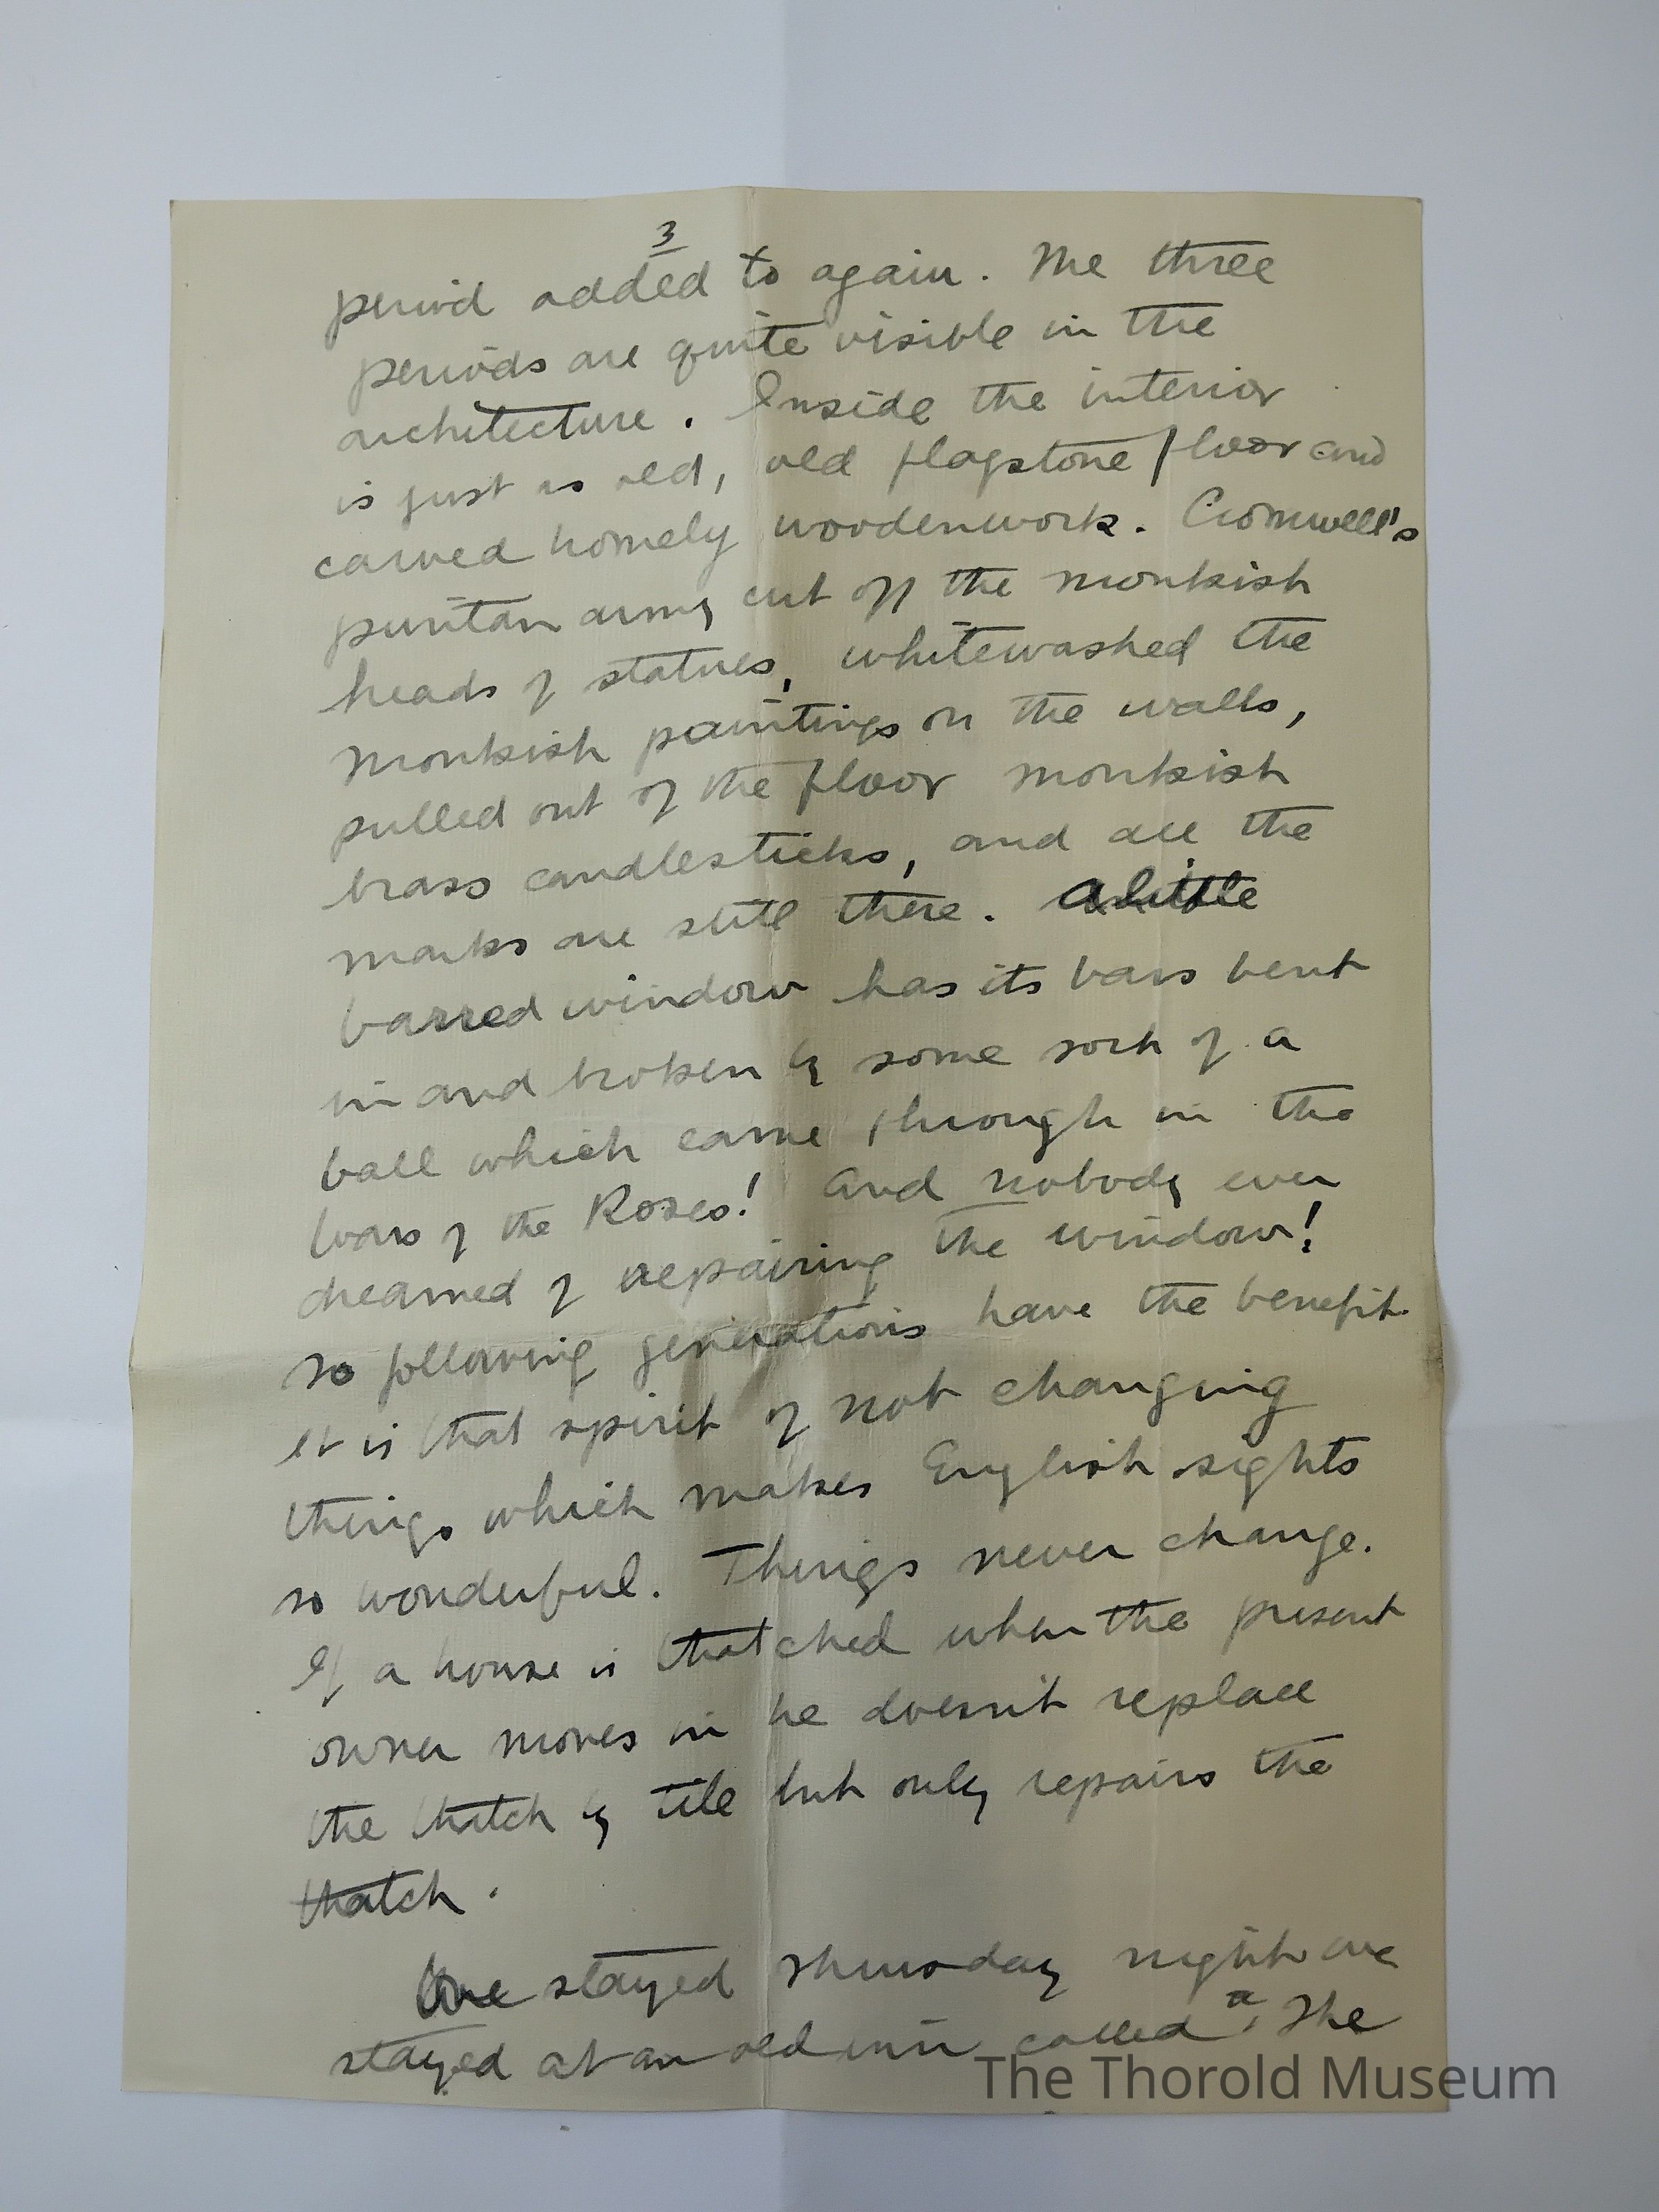 3
period added to again. The three
periods are quite visible in the
architecture. Inside the interior
is just as old, old flagstone floor and
carved homely woodenwork. Cromwell's
puritan army cut off the monkish
heads of statues, whitewashed the
monkish paintings on the walls,
pulled out of the floor monkish
brass candlesticks, and all the
marks are still there. A little
barred window has its bars bent
in and broken by some sort of a
ball which came through in the
Wars of the Roses! And nobody ever
dreamed of repairing the window!
So following generations have the benefit.
It is that spirit of not changing
things which makes English sights
so wonderful. Things never change.
If a house is thatched when the present
owner moves in he doesn't replace
the thatch by tile but only repairs the
thatch.
We stayed Thursday night we
stayed at an old inn called "The
The Thorold Museum